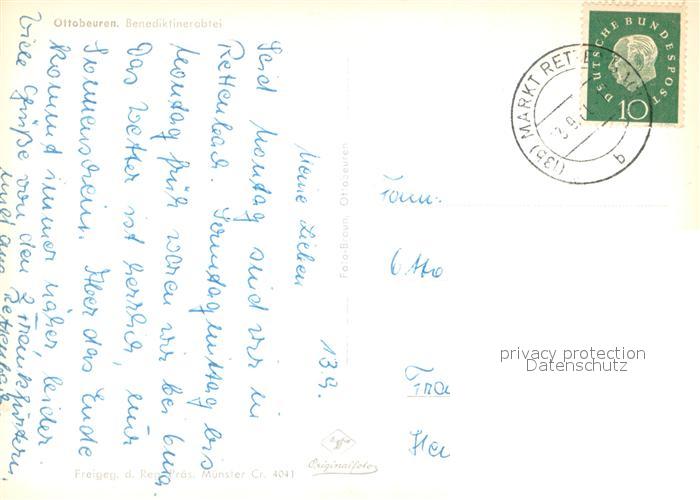 Ottobeuren. Benediktinerabtei
13.9.
Meine Lieben
Seid Montag sind wir in
Rettenbach. Sonntagmittag bis
Montag früh waren wir bei
Das Wetter ist herrlich, nur
Sonnenschein. Aber das Ende
kommt immer näher leider
Viele Grüße von den 2 Frankfurtern
und aus Rettenbach
Foto-Braun, Ottobeuren
Fam.
Otto
DEUTSCHE BUNDESPOST
10
(13b) MARKT RET
b
privacy protection
Datenschutz
Agfa
Originalfoto
Freigeg. d. Reg. Präs. Münster Cr. 4041